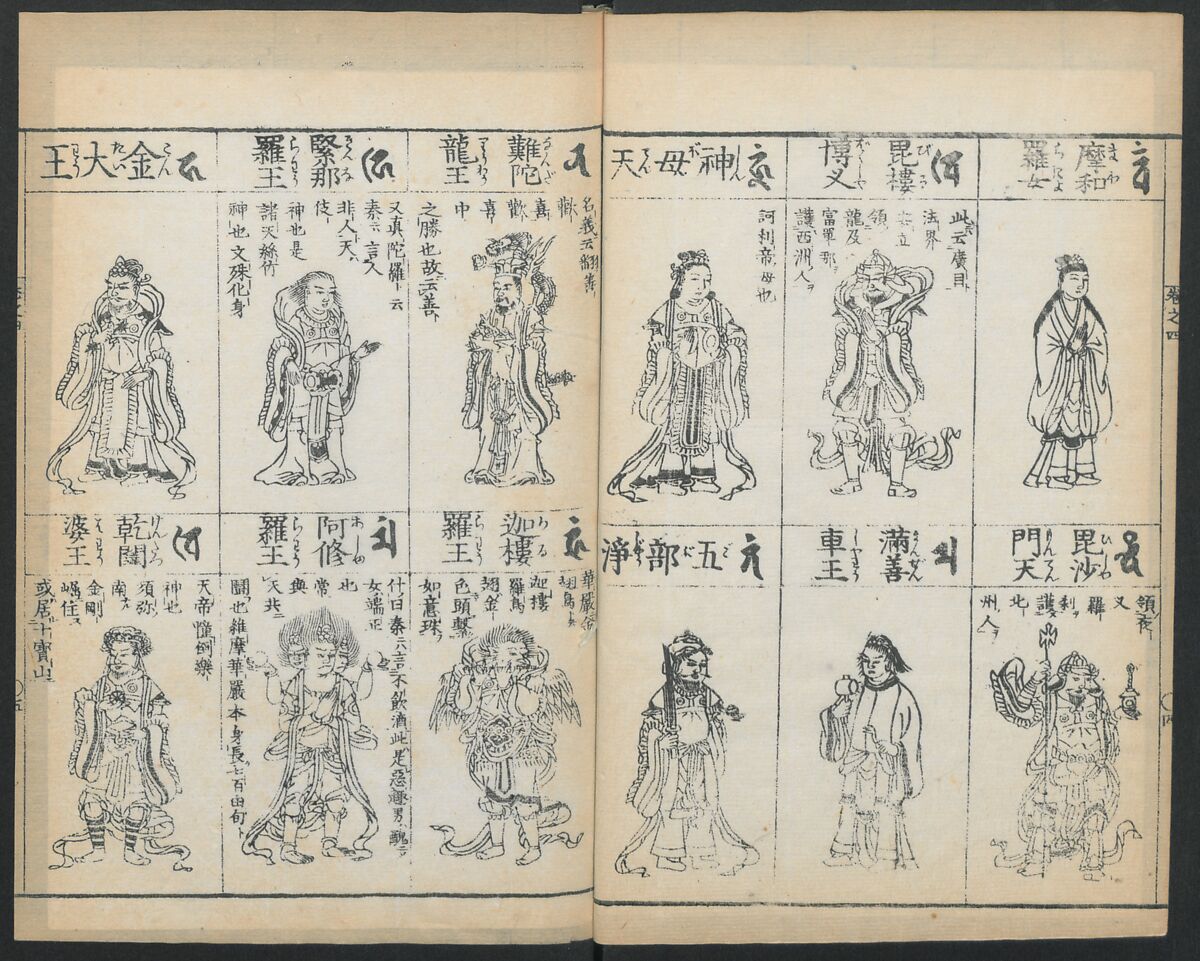 摩和羅女
毘樓博叉
此云廣目
法界
領
龍及
富單那ヲ
護西洲人ヲ
神母天
訶利帝母也
毘沙門天
領夜
叉
羅
刹ヲ
護
北
州人ヲ
滿善車王
五部淨
卷之四
難陀龍王
名義云翻善
歡
喜
歡
喜
中
之勝也故云善
緊那羅王
又真陀羅云
秦云言人
非人天
伎
神也是
諸天絲竹
神也文殊化身
金大王
迦樓羅王
迦樓
羅鳥
翅金
色頭繫
如意珠
阿修羅王
什曰秦云不飲酒此是惡趣男醜
女端正
也
常
與
天共
鬪也維摩華嚴本身長七百由旬
乾闥婆王
天帝幢倒樂
神也
須弥
南
金剛
崛住
或居十寶山